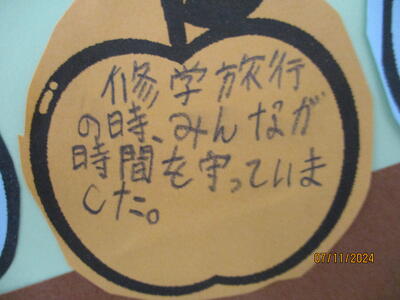 修学旅行
の時、みんなが
時間を守っていま
した。
07/11/2024